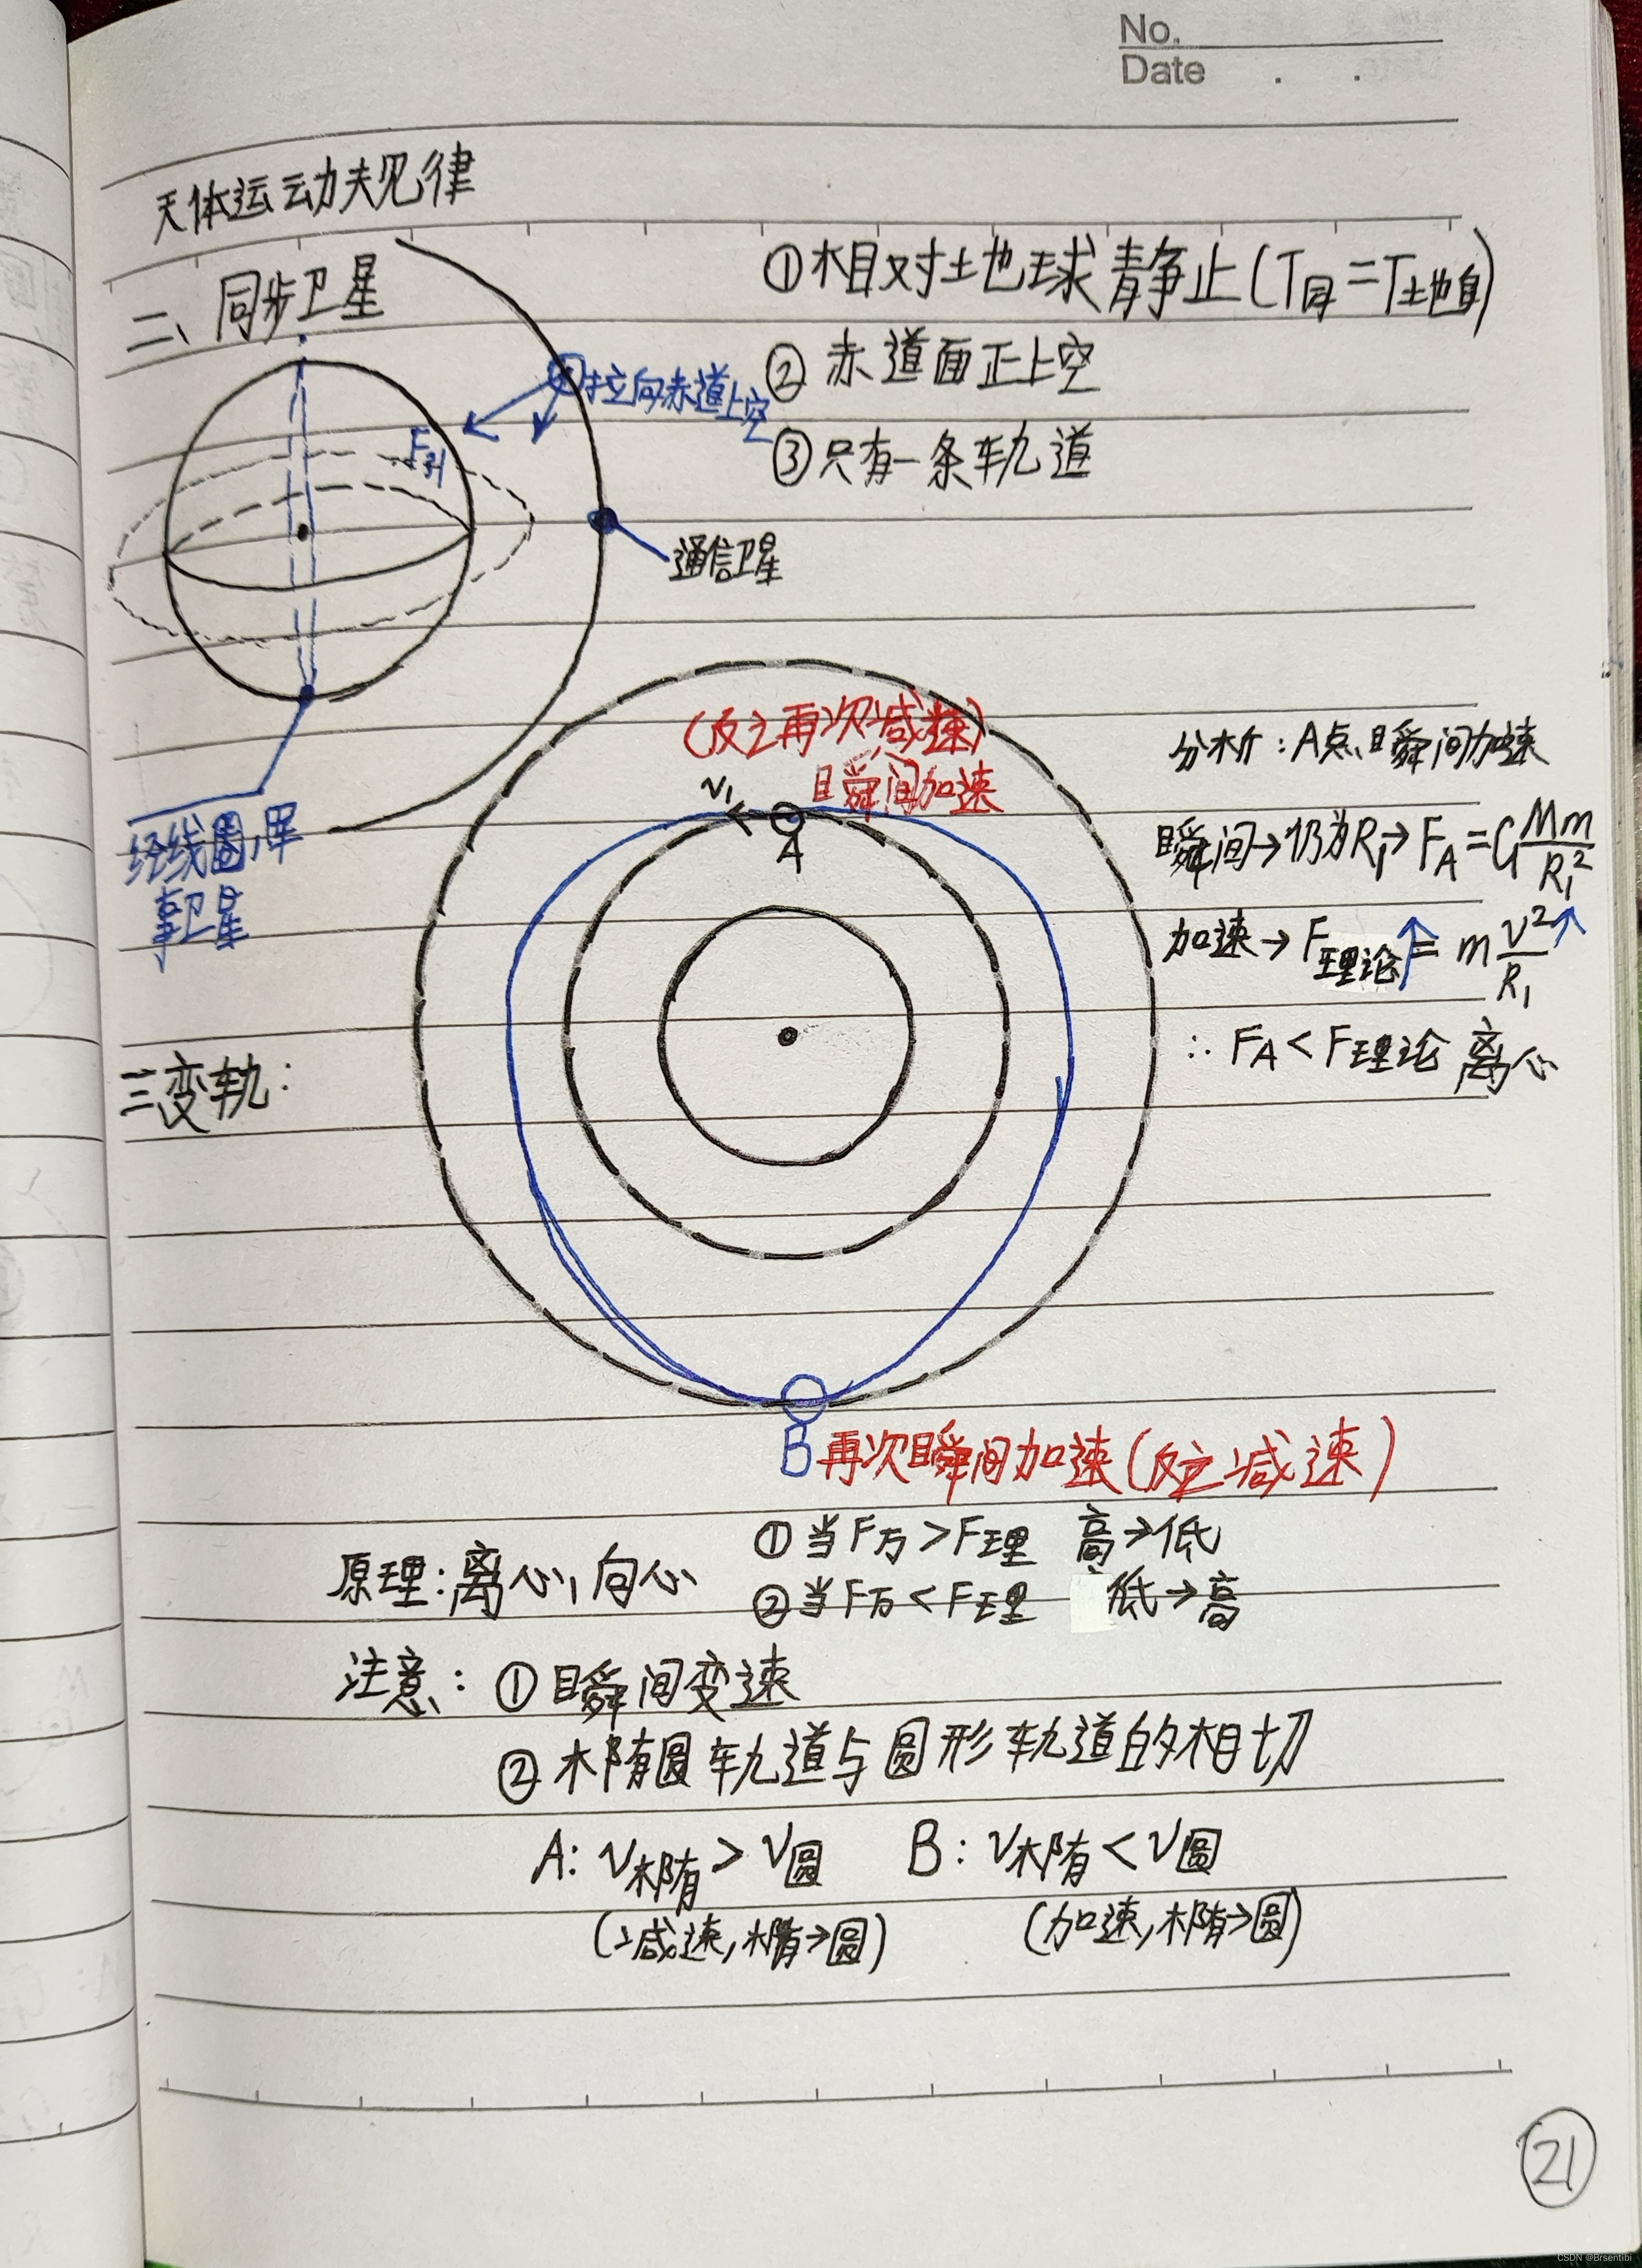 No.
Date . .
天体运动规律
二、同步卫星
①相对地球静止(T同=T地自)
②赤道面正上空
③只有一条轨道
拉向赤道上空
F引
通信卫星
经线圈,军
事卫星
三变轨:
(反之再次减速)
瞬间加速
v₁
A
分析:A点瞬间加速
瞬间→仍为R₁→F_A=G Mm/R₁²
加速→F理论↑=m v²/R₁↑
∴F_A<F理论 离心
B再次瞬间加速(反之减速)
原理:离心,向心
①当F万>F理 高→低
②当F万<F理 低→高
注意:①瞬间变速
②椭圆轨道与圆形轨道的相切
A:v椭>v圆 B:v椭<v圆
(减速,椭→圆) (加速,椭→圆)
21
CSDN @Brsentibi